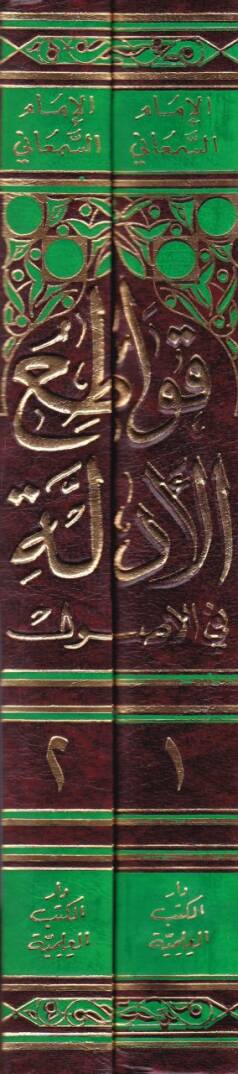 الإمام
السمعاني
الإمام
السمعاني
قواطع
الأدلة
في الأصول
١
٢
دار
الكتب
العلمية
دار
الكتب
العلمية